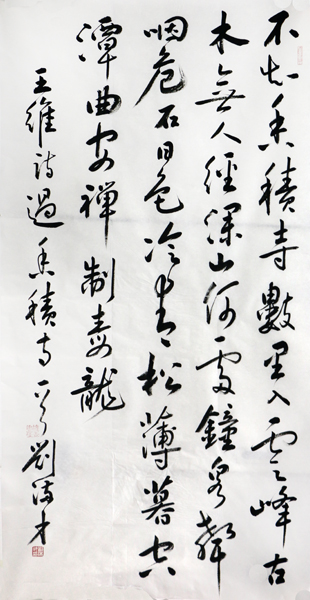 不知香積寺數里入雲峰古
木無人經深山何處鐘泉聲
咽危石日色冷青松薄暮空
潭曲安禪制毒龍
王維詩過香積寺一首劉才